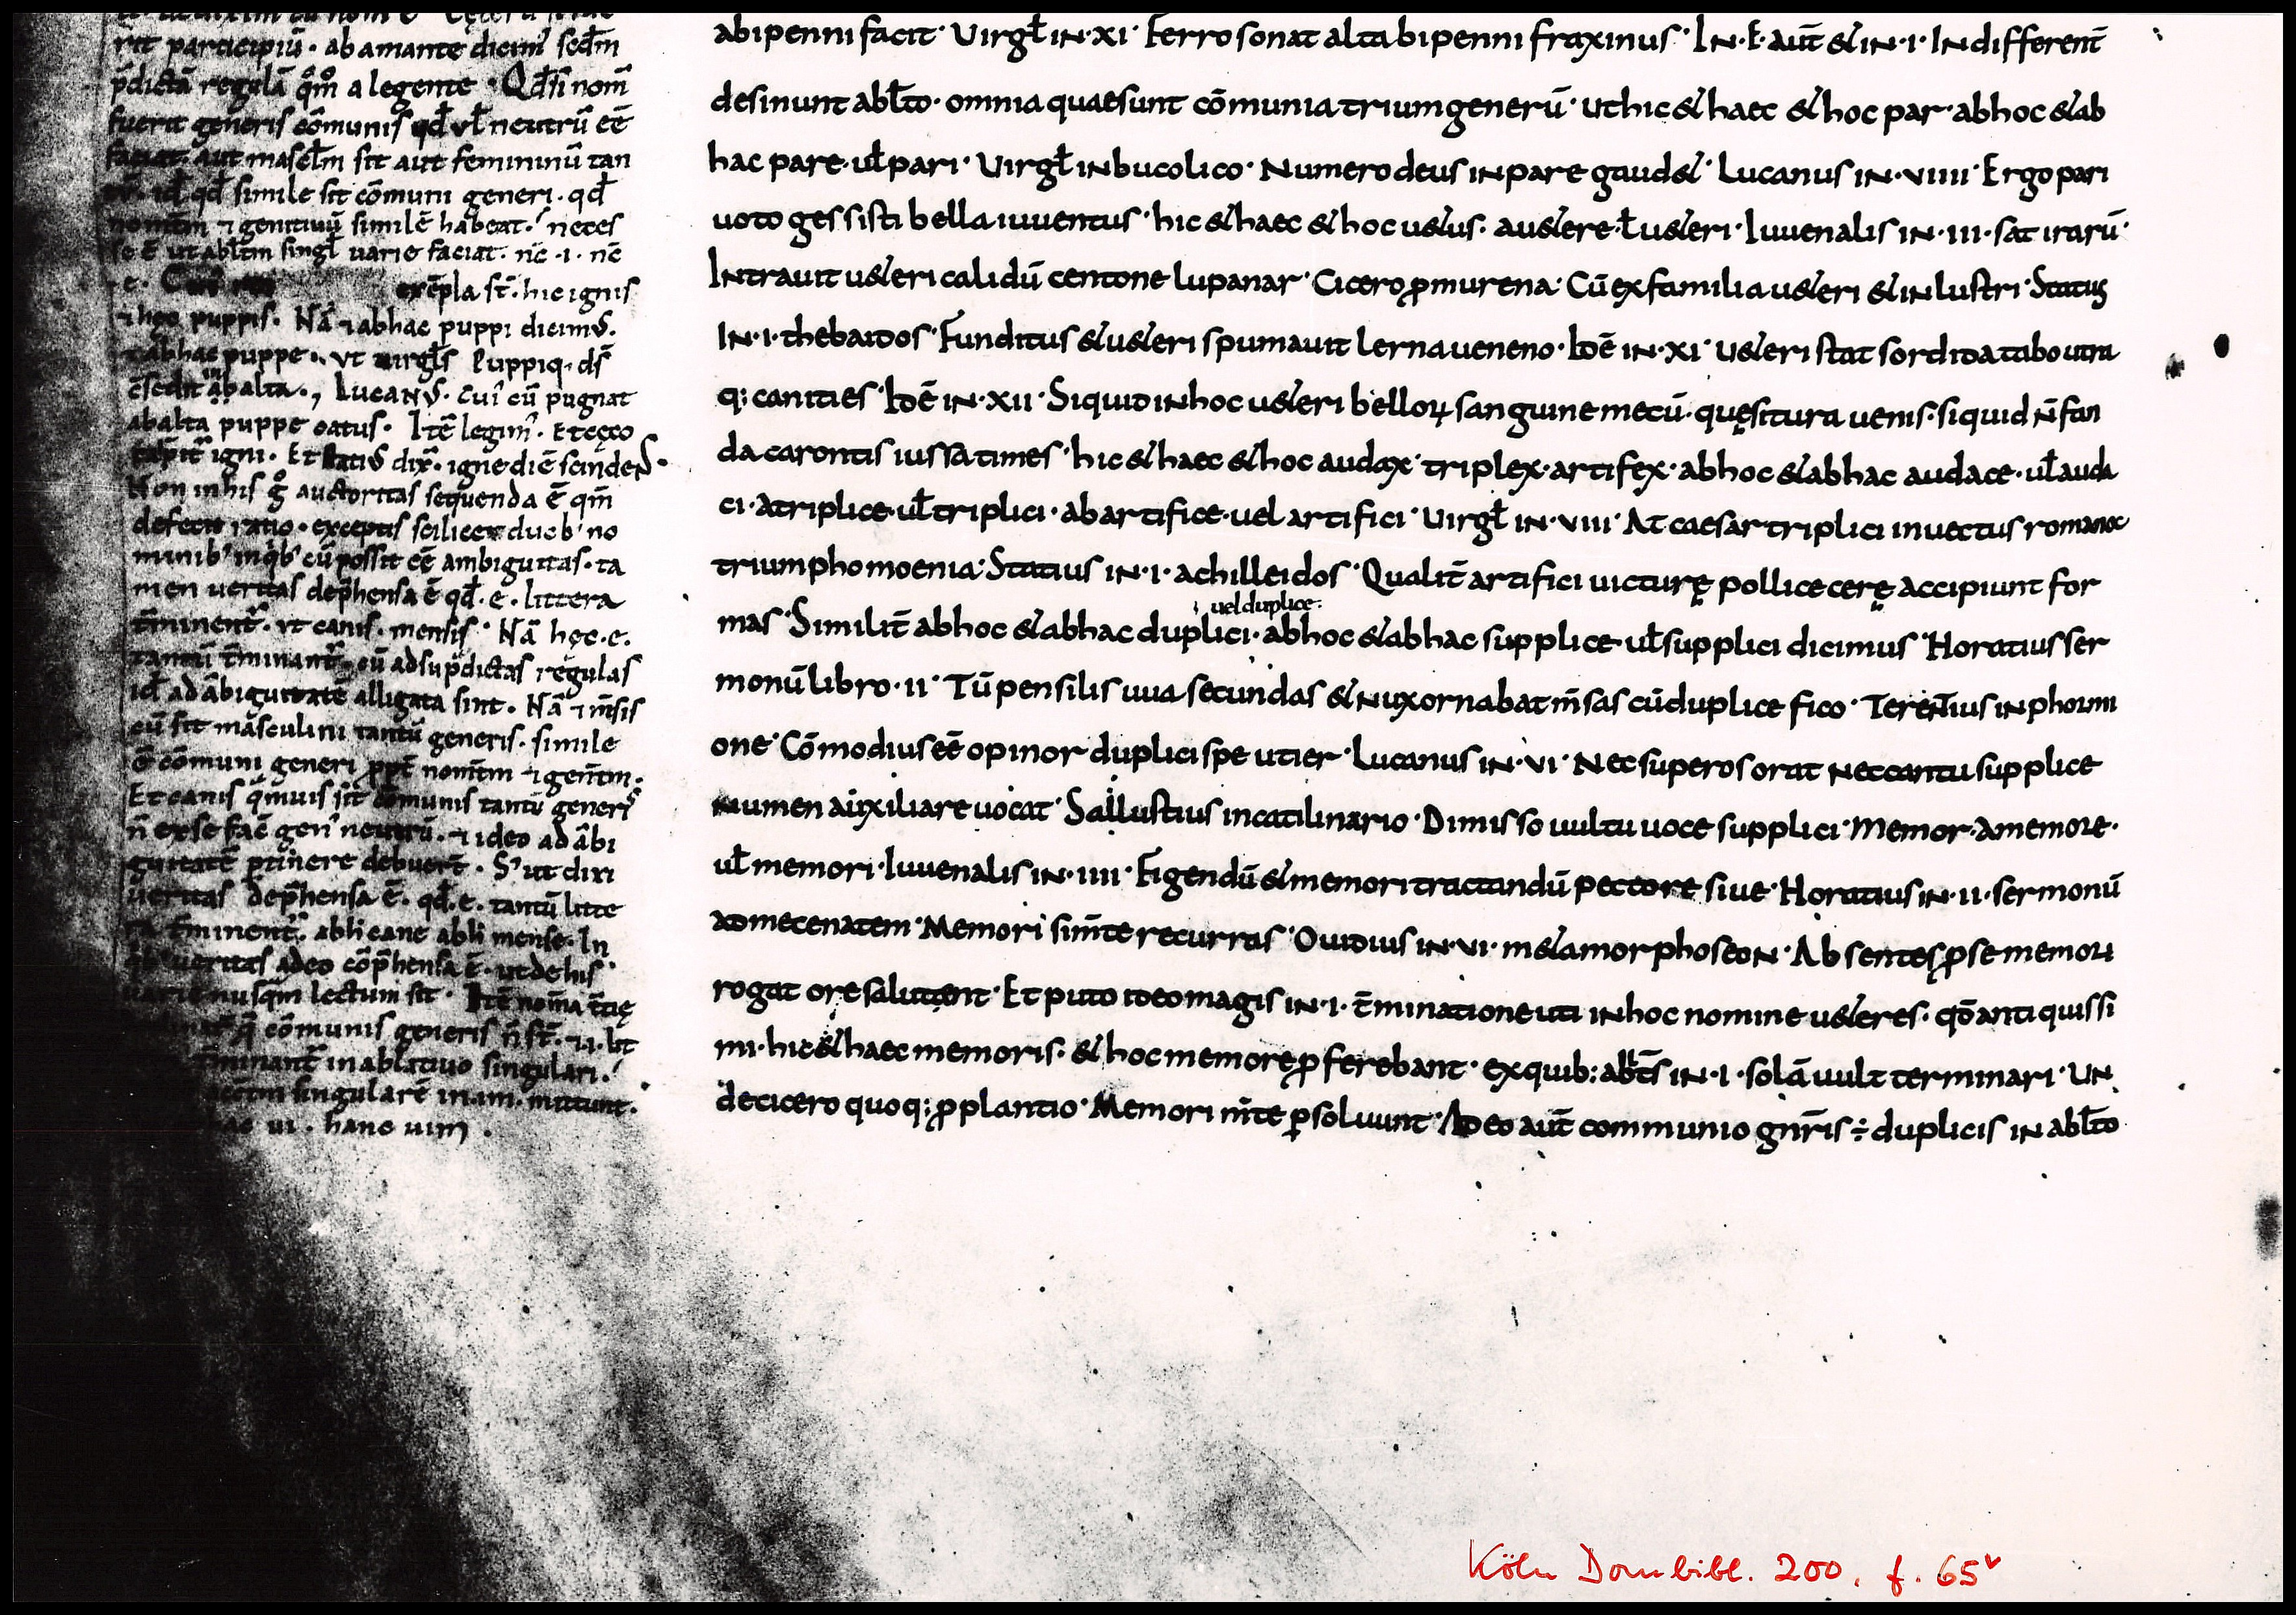 rit participiū · ab amante dicim̄ sed̄m
p̄dictā regulā q̄m̊ a legente · Qd̄ si nom̄
fuerit generis cōmunis qd̄ vł neutrū eē
faciat · aut mascłm sit aut femininū tan
id̄ qd̄ simile sit cōmuni generi · qd̄
nomtm ⁊ genitiuū similē habeat · neces
se ē ut abłtm singł uarie faciat · n̄c · i · n̄c
e · exēpla st̄ · hic ignis
⁊ hęc puppis · Nā ⁊ ab hac puppi dicimꝰ ·
⁊ ab hac puppe · vt uirgłs Puppiq · dſ
cſedit ab alta · , Lucanꝰ · cui cū pugnat
ab alta puppe catus · Itē legim̄ · Et cęco
igni · Et Statiꝰ dix̄ · igne diē scindeꝰ ·
Non in his g̊ auctoritas sequenda ē qm̄
defecit ratio · exceptis scilicet duob' no
minib' in qb' cū possit eē ambiguitas · ta
men ueritas dep̄hensa ē qd̄ · e · littera
t̄minent̄ · vt canis · mensis · Nā hęc · e ·
tantū t̄minant̄ cū ad sup̄dictas regulas
id̄ ad ābiguitatē alligata sint · Nā ⁊ m̄sis
cū sit masculini tantū generis · simile
ē cōmuni generi ꝓpt̄ nomtm ⁊ genitm ·
Et canis q̄muis sit cōmunis tantū generis
n̄ ex se fac̄ gen' neutrū · ⁊ ideo ad ābi
guitatē ptinere debuer̄t · S' ut dixi
ueritas dep̄hensa ē · qd̄ · e · tantū litte
ra t̄minent̄ · abłi cane abłi mense · In
qb' ueritas adeo cōp̄hensa ē · ut de his
uarie nusq̄m lectum sit · Itē nom̄a t̄cię
q̄ cōmunis generis n̄ st̄ · ⁊ · i · lit
t̄minant̄ in abłatiuo singulari ·
acc̄tm singularē in im · mittunt ·
hac ui · hanc uim ·
a bipenni facit · Uirgł IN · XI · Ferro sonat alta bipenni fraxinus · IN · E · aut̄ & IN · I · Indifferent̄
desinunt abłto · omnia quae sunt cōmunia trium generū · ut hic & haec & hoc par · ab hoc & ab
hac pare · uł pari · Uirgł in bucolico · Numero deus INpare gaud& · Lucanus IN · VIIII · Ergo pari
uoto gessisti bella iuuentus · hic & haec & hoc u&us · au&ere · ł u&eri · Iuuenalis IN · III · satirarū ·
Intrauit u&eri calidū centone lupanar · Cicero ꝓ murena · Cū ex familia u&eri & INlustri · Status
IN · I · thebaidos · Funditus & u&eri spumauit lerna ueneno · Idē IN · XI · U&eri stat sordida tabo utra
q; canities · Idē IN · XII · Siquid IN hoc u&eri belloꝝ sanguine mecū · quęsitura uenis · siquid n̄ fan
da carontis iussa times · hic & haec & hoc audax · triplex · artifex · ab hoc & ab hac audace · uł auda
ci · A triplice · uł triplici · ab artifice · uel artifici · Uirgł IN · VIII · At caesar triplici inuectus romano
triumpho moenia · Statius IN · I · achilleidos · Qualit̄ artifici uicturę pollice cerę accipiunt for
mas · Similit̄ ab hoc & ab hac duplici · uel duplice · ab hoc & ab hac supplice · uł supplici dicimus · Horatius ser
monū libro · II · Tū pensilis uua secundas & Nux ornabat m̄sas cū duplice fico · Terentius IN phorm
one · Cōmodius eē opinor duplici spe utier · Lucanus IN · VI · Nec superos orat Nec cantu supplice
Numen auxiliare uocat · Sallustius in catilinario · Dimisso uultu uoce supplici · Memor · A memore ·
uł memori · Iuuenalis IN · IIII · Figendū & memori tractandū pectore siue · Horatius IN · II · sermonū
ad mecenatem · Memori sim̄te recurras · Ouidius IN · VI · m&amorphoseoN · Absentes ꝓ se memori
rogat ore salutent · Et puto ideo magis IN · I · t̄minatione uti IN hoc nomine u&eres · qđ antiquissi
mi · hic & haec memoris · & hoc memore ꝓferebant · ex quib: abłts IN · I · solā uult terminari · UN
de cicero quoq; ꝓ plantio · Memori m̄te ꝑsoluunt · Adeo aut̄ communio gn̄ris ÷ duplicis IN abłto
Köln Dombibl. 200, f. 65ᵛ